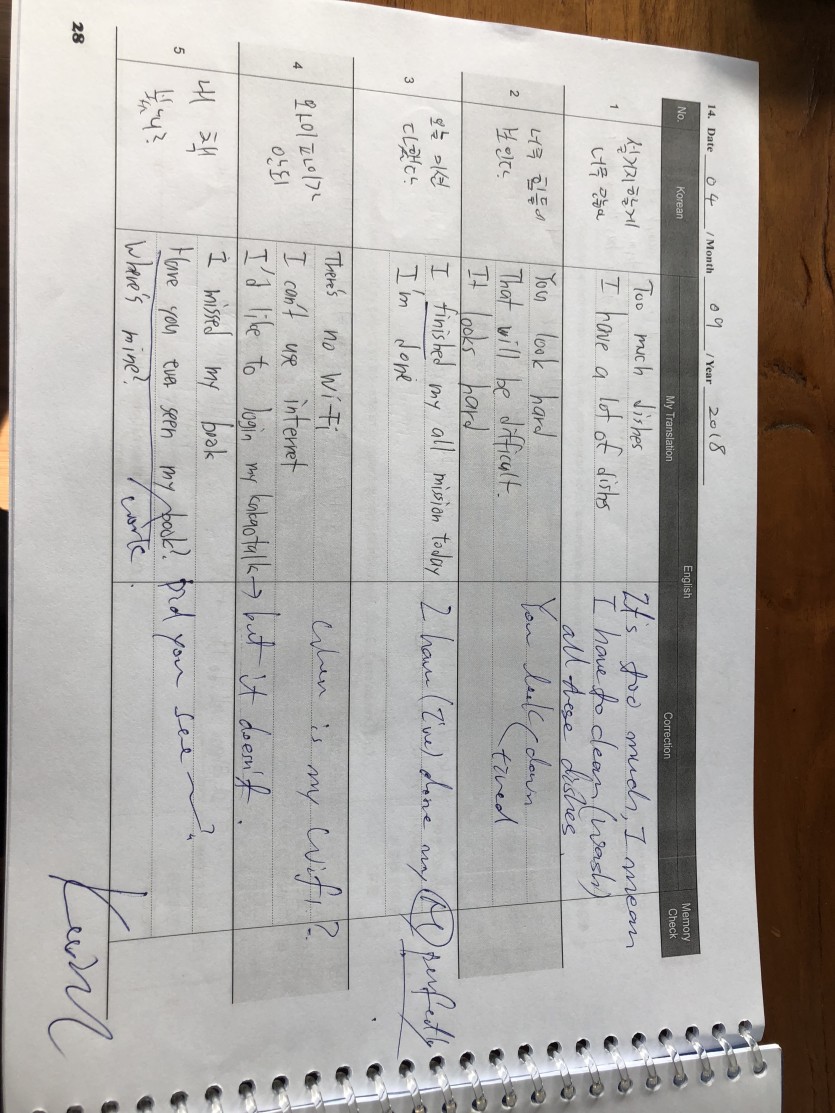 14. Date 04 / Month 09 / Year 2018
No. Korean English Memory Check
My Translation Correction
1
설거지할게
너무 많다
Too much dishes
I have a lot of dishs
It's too much, I mean
I have to clean (wash)
all these dishes.
2
너무 힘들어
보인다
You look hard
That will be difficult.
It looks hard
You look down
tired
3
오늘 미션
다했다
I finished my all mission today
I'm done
I have (I've) done my perfectly
4
와이파이가
안돼
There's no WiFi
I can't use internet
I'd like to login my kakaotalk → but it doesn't
work.
my wifi?
5
내 책
봤니?
I missed my book
Have you ever seen my book?
Where's mine?
Did you see ~?
28